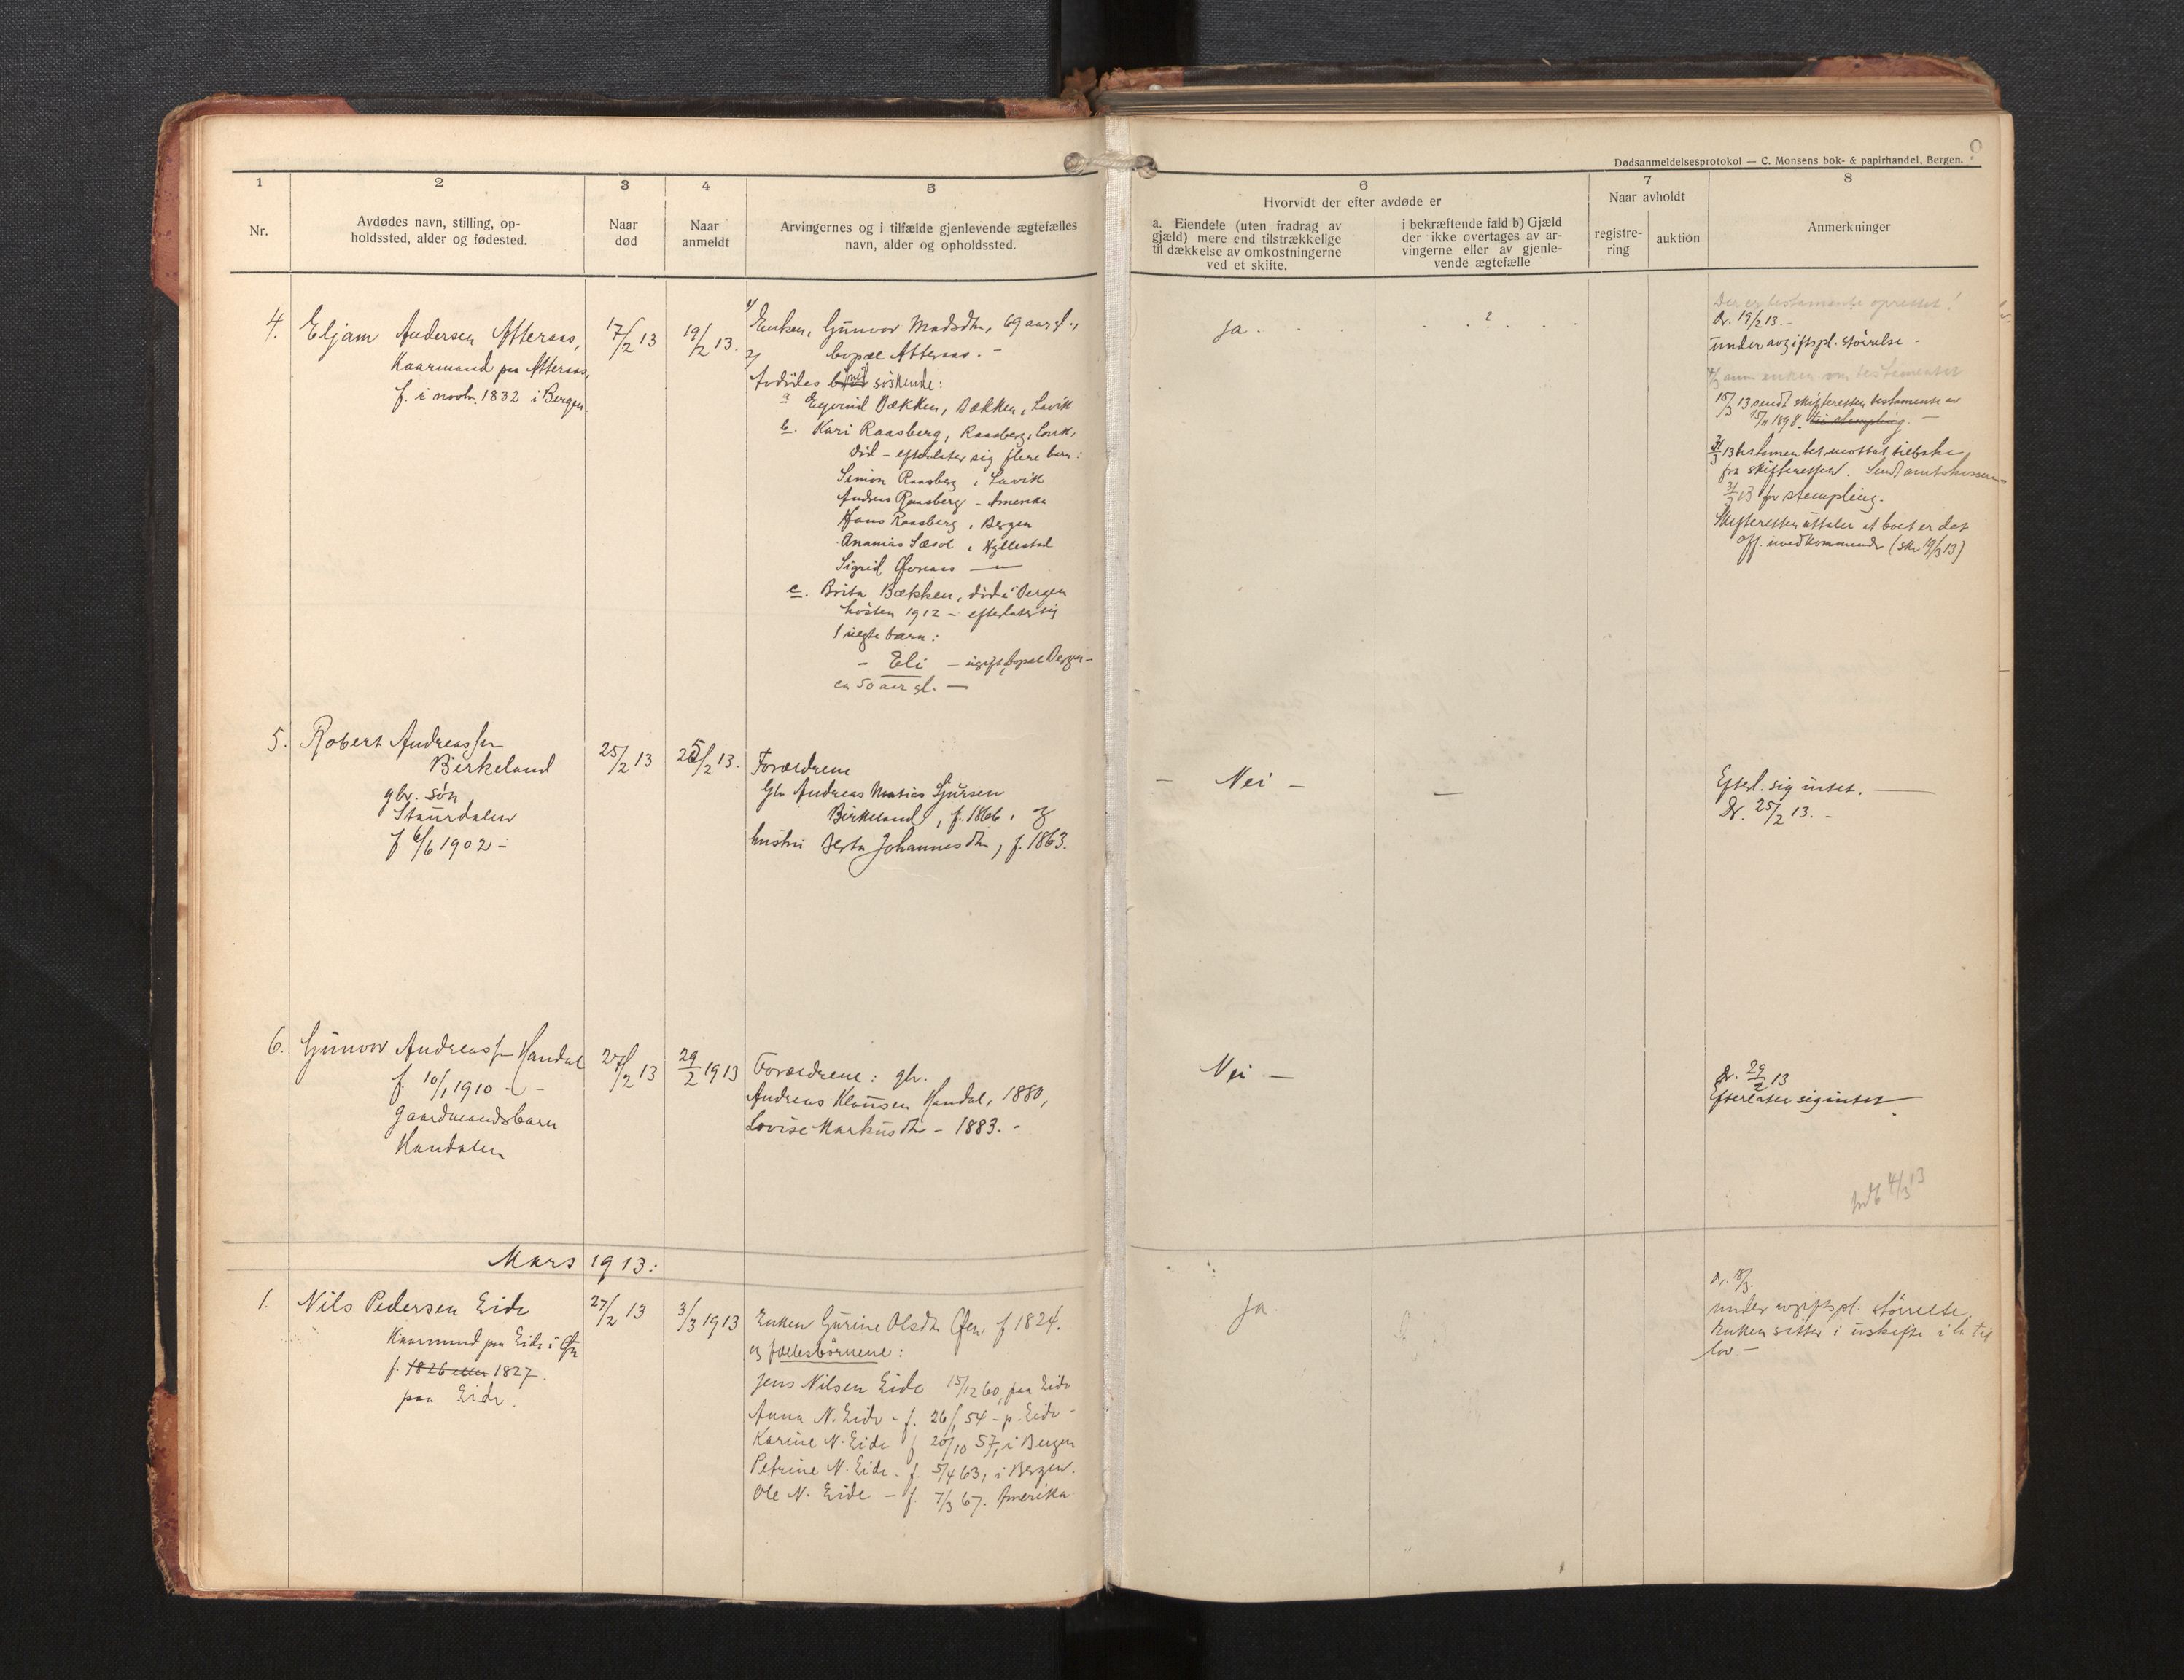 Dødsanmeldelsesprotokol — C. Monsens bok- & papirhandel, Bergen.
1
2
3
4
5
6
7
8
Nr.
Avdødes navn, stilling, op-
holdssted, alder og fødested.
Naar
død
Naar
anmeldt
Arvingernes og i tilfælde gjenlevende ægtefælles
navn, alder og opholdssted.
Hvorvidt der efter avdøde er
a. Eiendele (uten fradrag av
gjæld) mere end tilstrækkelige
til dækkelse av omkostningerne
ved et skifte.
i bekræftende fald b) Gjæld
der ikke overtages av ar-
vingerne eller av gjenle-
vende ægtefælle
Naar avholdt
registre-
ring
auktion
Anmerkninger
4.
Eljam Andersen Atteraas,
Kaarmand paa Atteraas,
f. i novbr. 1832 i Bergen.
17/2 13
19/2 13.
1/ Enken, Gunvor Madsdtr, 69 aar gl.,
bopæl Atteraas. -
2/ Avdødes søskende:
a Eyvind Bækken, Bækken, Lavik
b. Kari Raasberg, Raasberg, Lavik,
død - efterlater sig flere barn:
Simon Raasberg i Lavik
Andreas Raasberg - Amerika
Hans Raasberg i Bergen
Ananias i Hyllestad
Sigrid
c. Brita Bækken, død i Bergen
høsten 1912 - efterlater sig
1 uegte barn:
- Eli - ugift, bopæl Bergen -
ca 50 aar gl. -
Ja.
?
Der er testamente oprettet!
Dr. 19/2 13. -
under avgiftspl. størrelse.
enken om testamentet
15/3 13 sendt skifteretten testamente av
15/11 1898. til stempling. -
31/3 13 testamentet mottat tilbake
fra skifteretten. Sendt
31/3 13 for stempling.
Skifteretten uttaler at boet er det
off. uvedkommende (skr 19/3 13)
5.
Robert Andreassen
Birkeland
gbr. søn
Staurdalen
f 6/6 1902 -
25/2 13
25/2 13.
Forældrene
Gbr Andreas Matias Sjursen
Birkeland, f. 1866, og
hustru Berta Johannesdtr, f. 1863.
- Nei -
—
Efterl. sig intet. —
Dr. 25/2 13. -
6.
Gunvor Andreassen Handal
f. 10/1 1910 -
Gaardmandsbarn
Handalen
27/2 13
29/2 1913
Forældrene: gbr.
Andreas Klausen Handal, 1880,
Lovise Markusdtr - 1883. -
Nei -
Dr. 29/2 13
Efterlater sig intet
4/3 13
Mars 1913:
1.
Nils Pedersen Eide
Kaarmand paa Eide i
f. 1826 eller 1827.
paa Eide.
27/2 13
3/3 1913
Enken Gurine Olsdtr f 1824.
og fællesbørnene:
Jens Nilsen Eide 15/12 60, paa Eide
Anna N. Eide - f. 26/1 54 - p. Eide -
Karine N. Eide f 20/10 57, i Bergen
Petrine N. Eide - f. 5/4 63, i Bergen.
Ole N. Eide - f. 7/3 67. Amerika
Ja.
under avgiftspl. størrelse
Enken sitter i uskifte i h. til
lov -